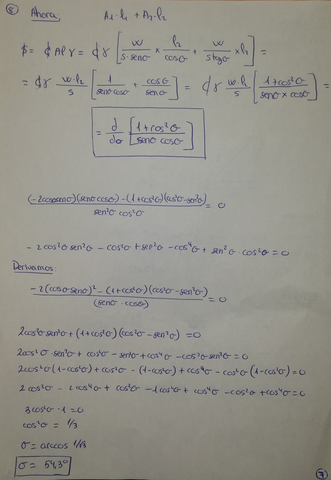 ⑤ Ahora, A₁·l₁ + A₂·l₂
$ = ¢ Al γ = ¢ γ [ w / (s·senσ) × l₂ / cosσ + w / (s tgσ) × l₂ ] =
= ¢ γ (w·l₂ / s) [ 1 / (senσ cosσ) + cosσ / senσ ] = ¢ γ (w·l₂ / s) [ (1 + cos²σ) / (senσ × cosσ) ] =
= d/dσ [ (1 + cos²σ) / (senσ cosσ) ]
(-2cosσ senσ)(senσ cosσ) - (1+cos²σ)(cos²σ - sen²σ) / sen²σ cos²σ = 0
-2cos²σ sen²σ - cos²σ + sen²σ - cos⁴σ + sen²σ · cos²σ = 0
Derivamos:
-2(cosσ senσ)² - (1+cos²σ)(cos²σ - sen²σ) / (senσ · cosσ) = 0
2cos²σ sen²σ + (1+cos²σ)(cos²σ - sen²σ) = 0
2cos²σ · sen²σ + cos²σ - sen²σ + cos⁴σ - cos²σ sen²σ = 0
2cos²σ (1-cos²σ) + cos²σ - (1-cos²σ) + cos⁴σ - cos²σ (1-cos²σ) = 0
2cos²σ - 2cos⁴σ + cos²σ - 1 cos²σ + cos⁴σ - cos²σ + cos⁴σ = 0
3cos²σ · 1 = 0
cos²σ = 1/3
σ = arccos √1/3
σ = 54,3°
⑦